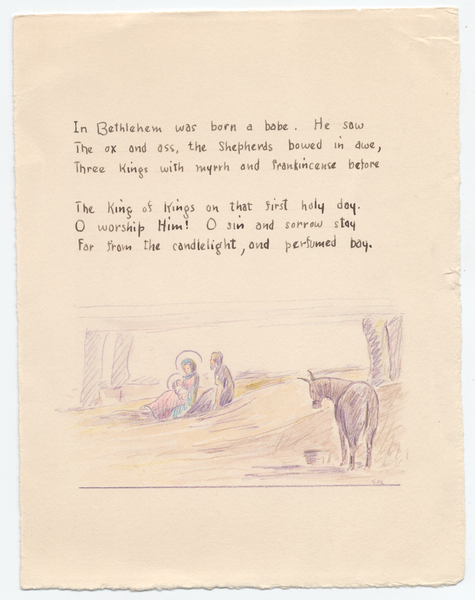 In Bethlehem was born a babe. He saw
The ox and ass, the Shepherds bowed in awe,
Three Kings with myrrh and frankincense before
The King of Kings on that first holy day.
O worship Him! O sin and sorrow stay
Far from the candlelight, and perfumed bay.